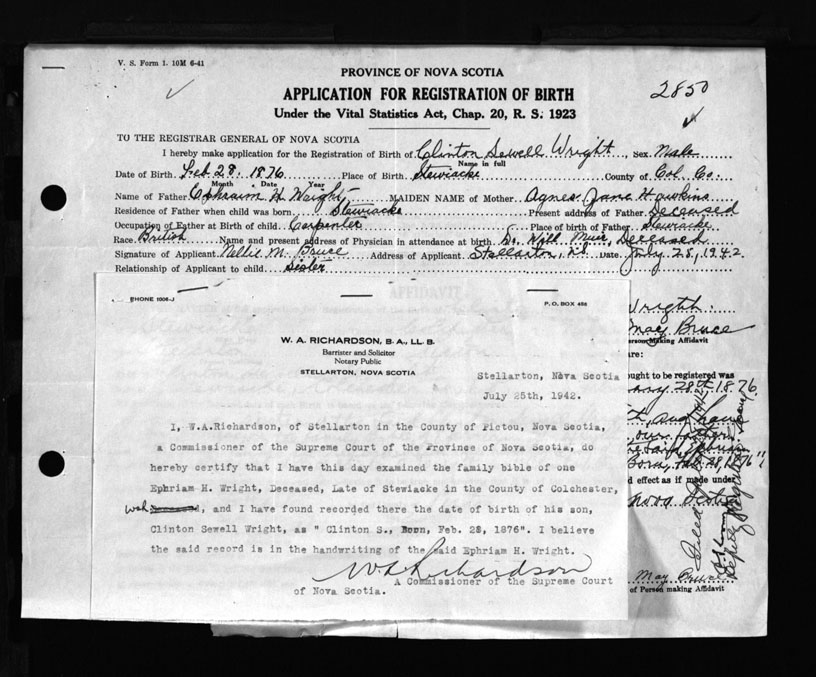 V. S. Form 1. 10M 6-41
2850
PROVINCE OF NOVA SCOTIA
APPLICATION FOR REGISTRATION OF BIRTH
Under the Vital Statistics Act, Chap. 20, R. S. 1923
TO THE REGISTRAR GENERAL OF NOVA SCOTIA
I hereby make application for the Registration of Birth of Clinton Sewell Wright, Sex Male
Name in full
Date of Birth Feb 28. 1876 Place of Birth Stewiacke County of Col. Co.
Month Date Year
Name of Father Ephraim H Wright, MAIDEN NAME of Mother Agnes Jane Hawkins
Residence of Father when child was born Stewiacke Present address of Father Deceased
Occupation of Father at Birth of child Carpenter Place of birth of Father Stewiacke
Race British Name and present address of Physician in attendance at birth Dr. Will Muir, Deceased
Signature of Applicant Nellie M. Bruce Address of Applicant Stellarton, N.S. Date July 28, 1942.
Relationship of Applicant to child Sister
AFFIDAVIT
PHONE 1006-J
P. O. BOX 456
W. A. RICHARDSON, B. A., LL. B.
Barrister and Solicitor
Notary Public
STELLARTON, NOVA SCOTIA
Stellarton, Nova Scotia
July 25th, 1942.
I, W.A.Richardson, of Stellarton in the County of Pictou, Nova Scotia,
a Commissioner of the Supreme Court of the Province of Nova Scotia, do
hereby certify that I have this day examined the family bible of one
Ephriam H. Wright, Deceased, Late of Stewiacke in the County of Colchester,
, and I have found recorded there the date of birth of his son,
Clinton Sewell Wright, as " Clinton S., Born, Feb. 28, 1876". I believe
the said record is in the handwriting of the said Ephriam H. Wright.
W A Richardson
A Commissioner of the Supreme Court
of Nova Scotia.
Wright
May Bruce
Person Making Affidavit
re:
ought to be registered was
28th 1876
Born, Feb. 28, 1876"
d effect as if made under
Nova Scotia
May Bruce
of Person making Affidavit